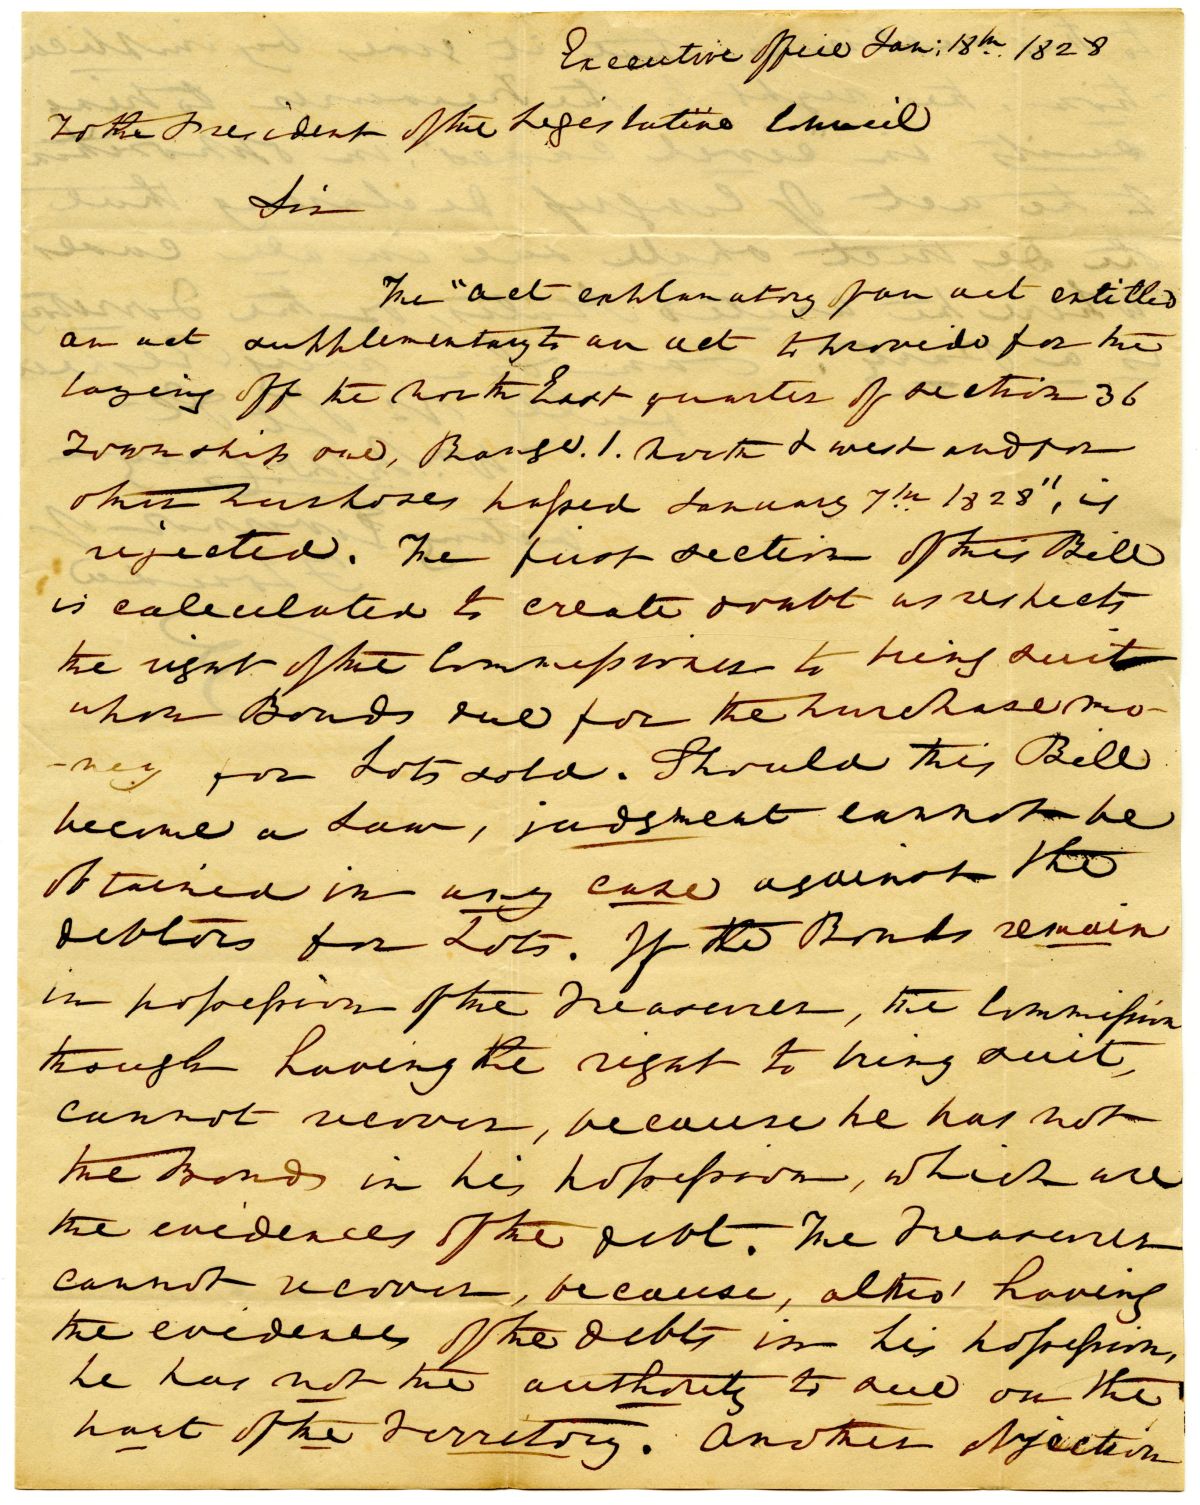 Executive office Jan: 18th 1828
To the President of the Legislative Council
Sir
The "act explanatory of an act entitled
an act supplementary to an act to provide for the
laying off the North East quarter of section 36
Township one, Range. 1. North & west and for
other purposes passed January 7th 1828", is
rejected. The first section of this Bill
is calculated to create doubt as respects
the right of the Commissioner to bring suit
upon Bonds due for the purchase mo-
-ney for Lots sold. Should this Bill
become a Law, judgment cannot be
obtained in any case against the
debtors for Lots. If the Bonds remain
in possession of the Treasurer, the Commission
though having the right to bring suit,
cannot recover, because he has not
the Bonds in his possession, which are
the evidences of the debt. The Treasurer
cannot recover, because, altho' having
the evidences of the debts in his possession,
he has not the authority to sue on the
part of the Territory. Another objection